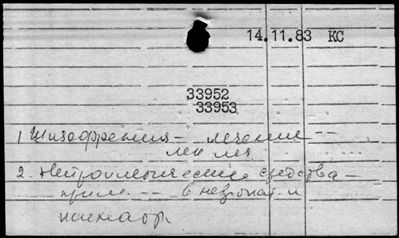 14.11.83 КС
33952
33953
1 Шизофрения - лечение --
2. Нейролептические средства -
прим. -- в невропат. и
психиатр.